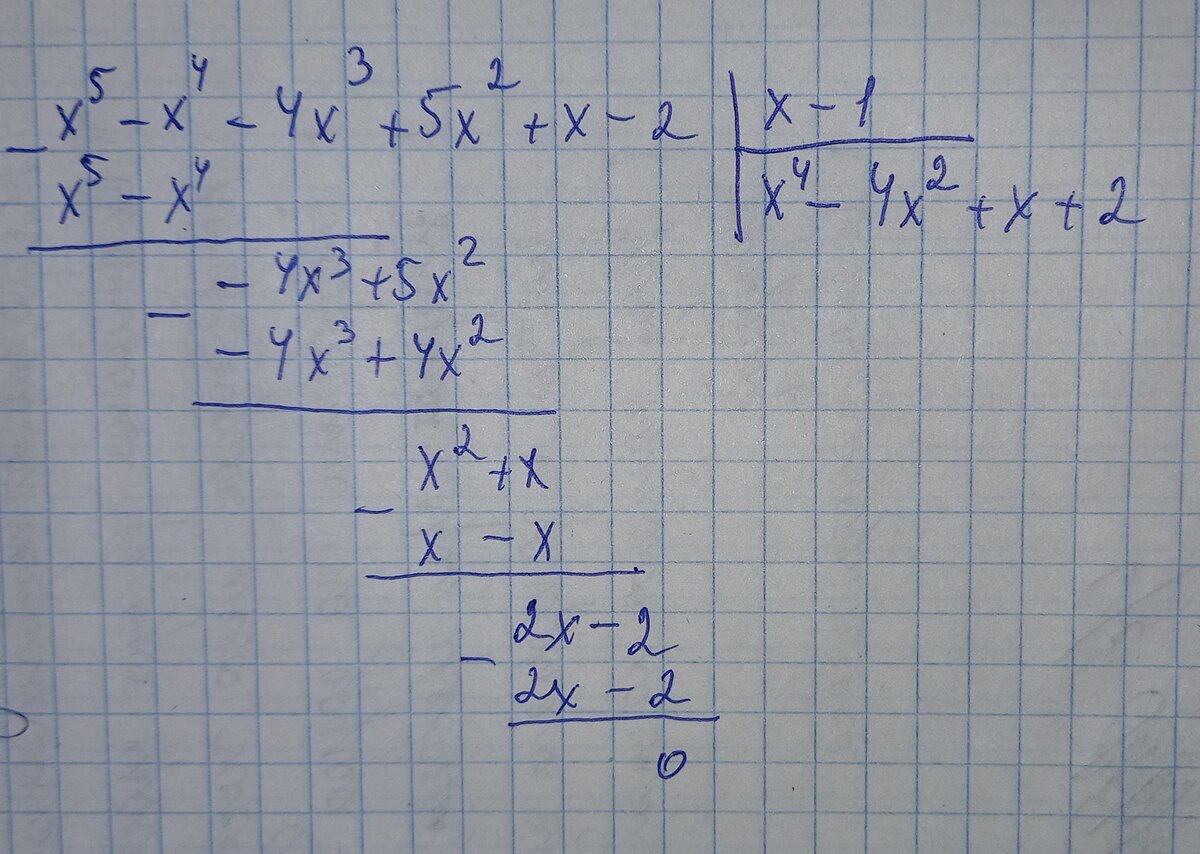 x⁵ - x⁴ - 4x³ + 5x² + x - 2 | x - 1
- x⁵ - x⁴ | x⁴ - 4x² + x + 2
- 4x³ + 5x²
- - 4x³ + 4x²
x² + x
- x - x
2x - 2
- 2x - 2
0